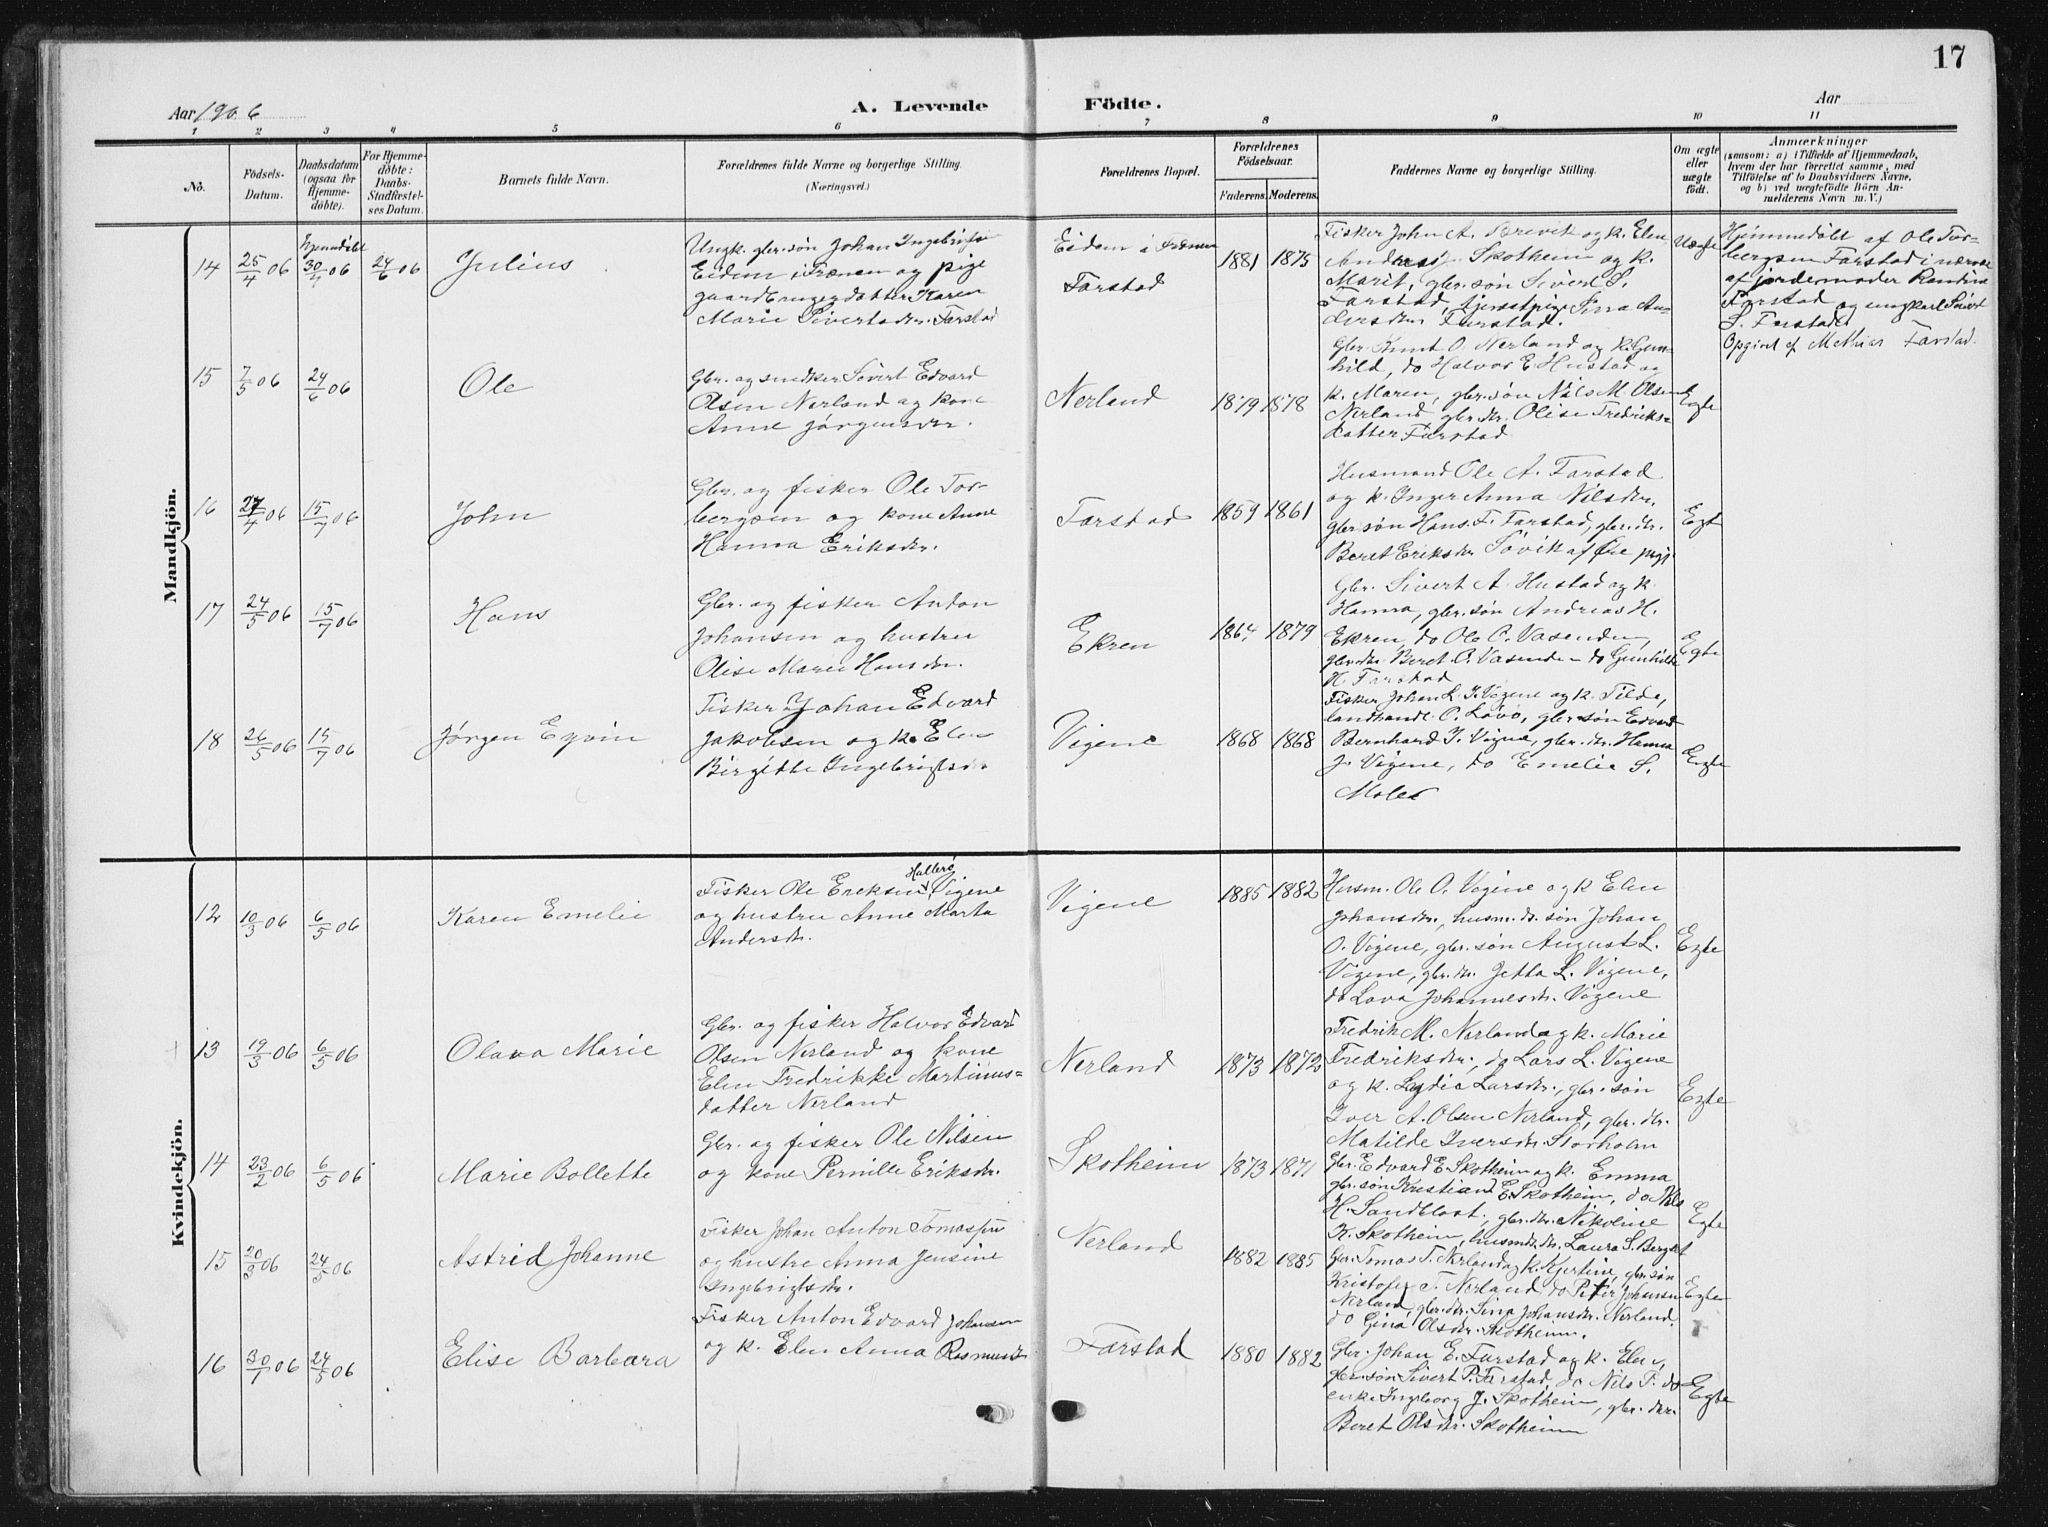 17
Aar 1906
A. Levende
Födte.
Aar
1 2 3 4 5 6 7 8 9 10 11
No.
Födsels-
Datum.
Daabsdatum
(ogsaa for
Hjemme-
döbte).
For Hjemme-
döbte:
Daabs-
Stadfæstel-
ses Datum.
Barnets fulde Navn.
Forældrenes fulde Navne og borgerlige Stilling.
(Næringsvei.)
Forældrenes Bopæl.
Forældrenes
Födselsaar.
Faderens. Moderens.
Faddernes Navne og borgerlige Stilling.
Om ægte
eller
uægte
födt.
Anmærkninger
(saasom: a) i Tilfælde af Hjemmedaab,
hvem der har forrettet samme, med
Tilföielse af to Daabsvidners Navne,
og b) ved uægtefödte Börn An-
melderens Navn m. V.)
Mandkjön.
14
25/4 06
Hjemmdøbt
30/4 06
24/6 06
Julius
Ungk. gbr. søn Johan Ingebrigtsen
Eidem i Frænen og pige
gaardbrugerdatter Karen
Marie Sivertsdr. Farstad
Eidem i Frænen
Farstad
1881 1875
Fisker John A. Brevik og k. Elen
Anders J. Skotheim og k.
Marit, gbr. søn Sivert S.
Farstad, tjenestpige Sina An-
dersdr. Farstad.
Uægte
Hjemmedøbt af Ole Tor-
bergsen Farstad i nærvær
af jordemoder Randine
Farstad og ungkarl Sivert
S. Farstad
Opgivet af Mathias Farstad.
15
7/5 06
24/6 06
Ole
Gbr. og snedker Sivert Edvard
Olsen Nerland og kone
Anne Jørgensdr.
Nerland
1879 1878
Gbr. Knut O. Nerland og k. Gun-
hild, do Halvor E. Hustad og
k. Maren, gbr. søn Nils M. Olsen
Nerland gbr. dr. Olise Fredriks-
datter Farstad
Egte
16
27/4 06
15/7 06
John
Gbr. og fisker Ole Tor-
bergsen og kone Anne
Hanna Eriksdr.
Farstad
1859 1861
Husmand Ole A. Farstad
og k. Inger Anna Nilsdr.
gbr. søn Hans F. Farstad, gbr. dr.
Beret Eriksdr Sövik af Øre prgj.
Egt
17
24/5 06
15/7 06
Hans
Gbr. og fisker Anton
Johansen og hustru
Olise Marie Hansdr.
Ekren
1864 1879
Gbr. Sivert A. Hustad og k.
Hanna, gbr. søn Andreas H.
Ekren, do Ole O. Vasenden,
gbr. dr. Beret O. Vasende - do Gunhilde
H. Farstad
Egte
18
26/5 06
15/7 06
Jørgen Egvin
Fisker Johan Edvard
Jakobsen og k. Elen
Birgitte Ingebrigtsdr
Vigene
1868 1868
Fisker Johan L. J. Vigene og k. Tilda,
landhandl. O. Lövo, gbr. søn Edvard
Bernhard J. Vigne, gbr. dr. Hanna
J. Vigene, do Emelie S.
Moles
Egte
Kvindekjön.
12
10/3 06
6/5 06
Karen Emelie
Hallerö
Fisker Ole Ereksen Vigene
og hustru Anne Marta
Andersdr.
Vigene
1885 1882
Husm. Ole O. Vigene og k Elen
Johansdr., husm. ds. søn Johan
O. Vigene, gbr. søn August L.
Vigene, gbr. dr. Jetta L. Vigene,
do Lova Johannesdr. Vigene
Egte
13
19/3 06
6/5 06
Olava Marie
Gbr. og fisker Halvor Edvard
Olsen Nerland og kone
Elen Fredrikke Martinus-
datter Nerland
Nerland
1873 1872
Fredrik M. Nerland og k. Marie
Fredriksdr., do Lars L. Vigene
og k. Lydia Larsdr., gbr. søn
Iver A. Olsen Nerland, gbr. dr.
Matilde Iversdr. Storholm
Egte
14
23/2 06
6/5 06
Marie Bollette
Gbr. og fisker Ole Nilsen
og kone Pernille Eriksdr.
Skotheim
1873 1871
Gbr. Edvard E. Skotheim og k. Emma
gbr. søn Kristian E. Skotheim, do Nils
H. Sandblast, gbr. dr. Nikoline
K. Skotheim, husmds. dr. Laura S. Bergset
Egte
15
20/3 06
24/5 06
Astrid Johanne
Fisker Johan Anton Tomassen
og hustru Anna Jensine
Ingebrigtsdr.
Nerland
1882 1885
Gbr. Tomas T. Nerland og k. Kjerstine, gbr. søn
Kristofer T. Nerland, do Peter Johansen
Nerland, gbr. dr. Sina Johansdr. Nerland,
do Gina Olsdr. Skotheim.
Egte
16
30/1 06
24/5 06
Elise Barbara
Fisker Anton Edvard Johansen
og k. Elen Anna Rasmusdr
Farstad
1880 1882
Gbr. Johan E. Farstad og k. Elen,
gbr. søn Sivert P. Farstad, do Nils P. do
enke Ingeborg J. Skotheim, gbr. dr.
Beret Olsdr. Skotheim
Egte